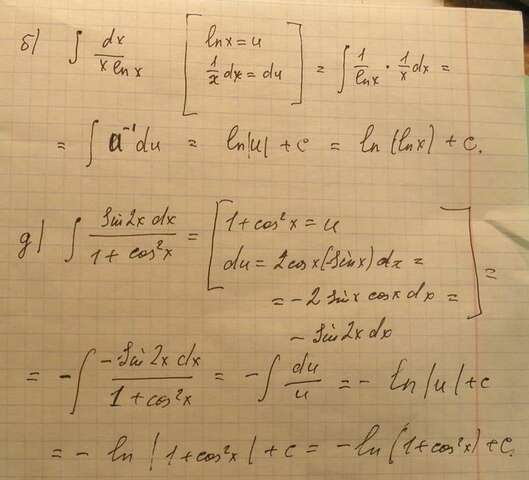 б) ∫ dx / (x ln x) [ ln x = u
1/x dx = du ] = ∫ 1/ln x · 1/x dx =
= ∫ u⁻¹ du = ln|u| + c = ln(ln x) + c.
д) ∫ sin 2x dx / (1 + cos²x) = [ 1 + cos²x = u
du = 2cosx(-sinx)dx =
= -2 sinx cosx dx =
- sin 2x dx ] =
= -∫ -sin 2x dx / (1 + cos²x) = -∫ du/u = - ln|u| + c
= - ln|1 + cos²x| + c = -ln(1 + cos²x) + c.